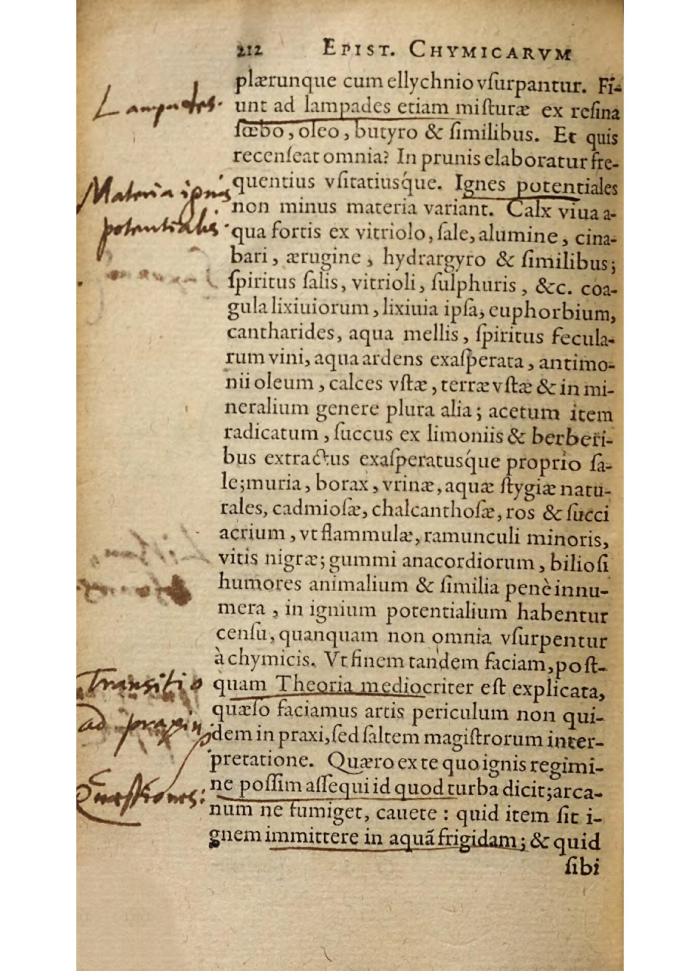 212 EPIST. CHYMICARVM
plærunque cum ellychnio vſurpantur. Fi-
Lampades.
unt ad lampades etiam miſturæ ex reſina
ſœbo, oleo, butyro & ſimilibus. Et quis
recenſeat omnia? In prunis elaboratur fre-
Materia ignis
quentius vſitatiusque. Ignes potentiales
potentialis.
non minus materia variant. Calx viua a-
qua fortis ex vitriolo, ſale, alumine, cina-
bari, ærugine, hydrargyro & ſimilibus;
ſpiritus ſalis, vitrioli, ſulphuris, &c. coa-
gula lixiuiorum, lixiuia ipſa, euphorbium,
cantharides, aqua mellis, ſpiritus fecula-
rum vini, aqua ardens exaſperata, antimo-
nii oleum, calces vſtæ, terræ vſtæ & in mi-
neralium genere plura alia; acetum item
radicatum, ſuccus ex limoniis & berberi-
bus extractus exaſperatusque proprio ſa-
le; muria, borax, vrinæ, aquæ ſtygiæ natu-
rales, cadmioſæ, chalcanthoſæ, ros & ſucci
acrium, vt flammulæ, ramunculi minoris,
vitis nigræ; gummi anacordiorum, bilioſi
humores animalium & ſimilia penè innu-
mera, in ignium potentialium habentur
cenſu, quanquam non omnia vſurpentur
à chymicis. Vt finem tandem faciam, poſt-
Transitio
quam Theoria mediocriter eſt explicata,
quæſo faciamus artis periculum non qui-
ad praxin
dem in praxi, ſed ſaltem magiſtrorum inter-
pretatione. Quæro ex te quo ignis regimi-
Quæstiones:
ne poſſim aſſequi id quod turba dicit; arca-
num ne fumiget, cauete: quid item ſit i-
gnem immittere in aquã frigidam; & quid
ſibi